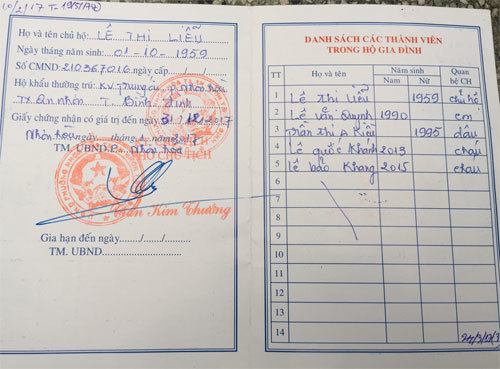 Họ và tên chủ hộ: LÊ THỊ LIỄU
Ngày tháng năm sinh: 01-10-1959
Số CMND: 210367016 ngày cấp ...../....../.......
Hộ khẩu thường trú: KV. Trung ái p. Nhơn hòa
TX An nhơn T Bình Định
Giấy chứng nhận có giá trị đến ngày 31/12/2017
Nhơn hòa ngày tháng 1 năm 2017
TM. UBND P. Nhơn hòa
CHỦ TỊCH
Trần Kim Thường
Gia hạn đến ngày....../....../......
TM. UBND
DANH SÁCH CÁC THÀNH VIÊN
TRONG HỘ GIA ĐÌNH
TT Họ và tên Năm sinh Quan hệ CH
Nam Nữ
1 Lê Thị Liễu 1959 chủ hộ
2 Lê văn Quỳnh 1990 em
3 Trần thị A Kiều 1995 dâu
4 Lê quốc Khánh 2013 cháu
5 Lê bảo Khang 2015 cháu
6
7
8
9
10
11
12
13
14